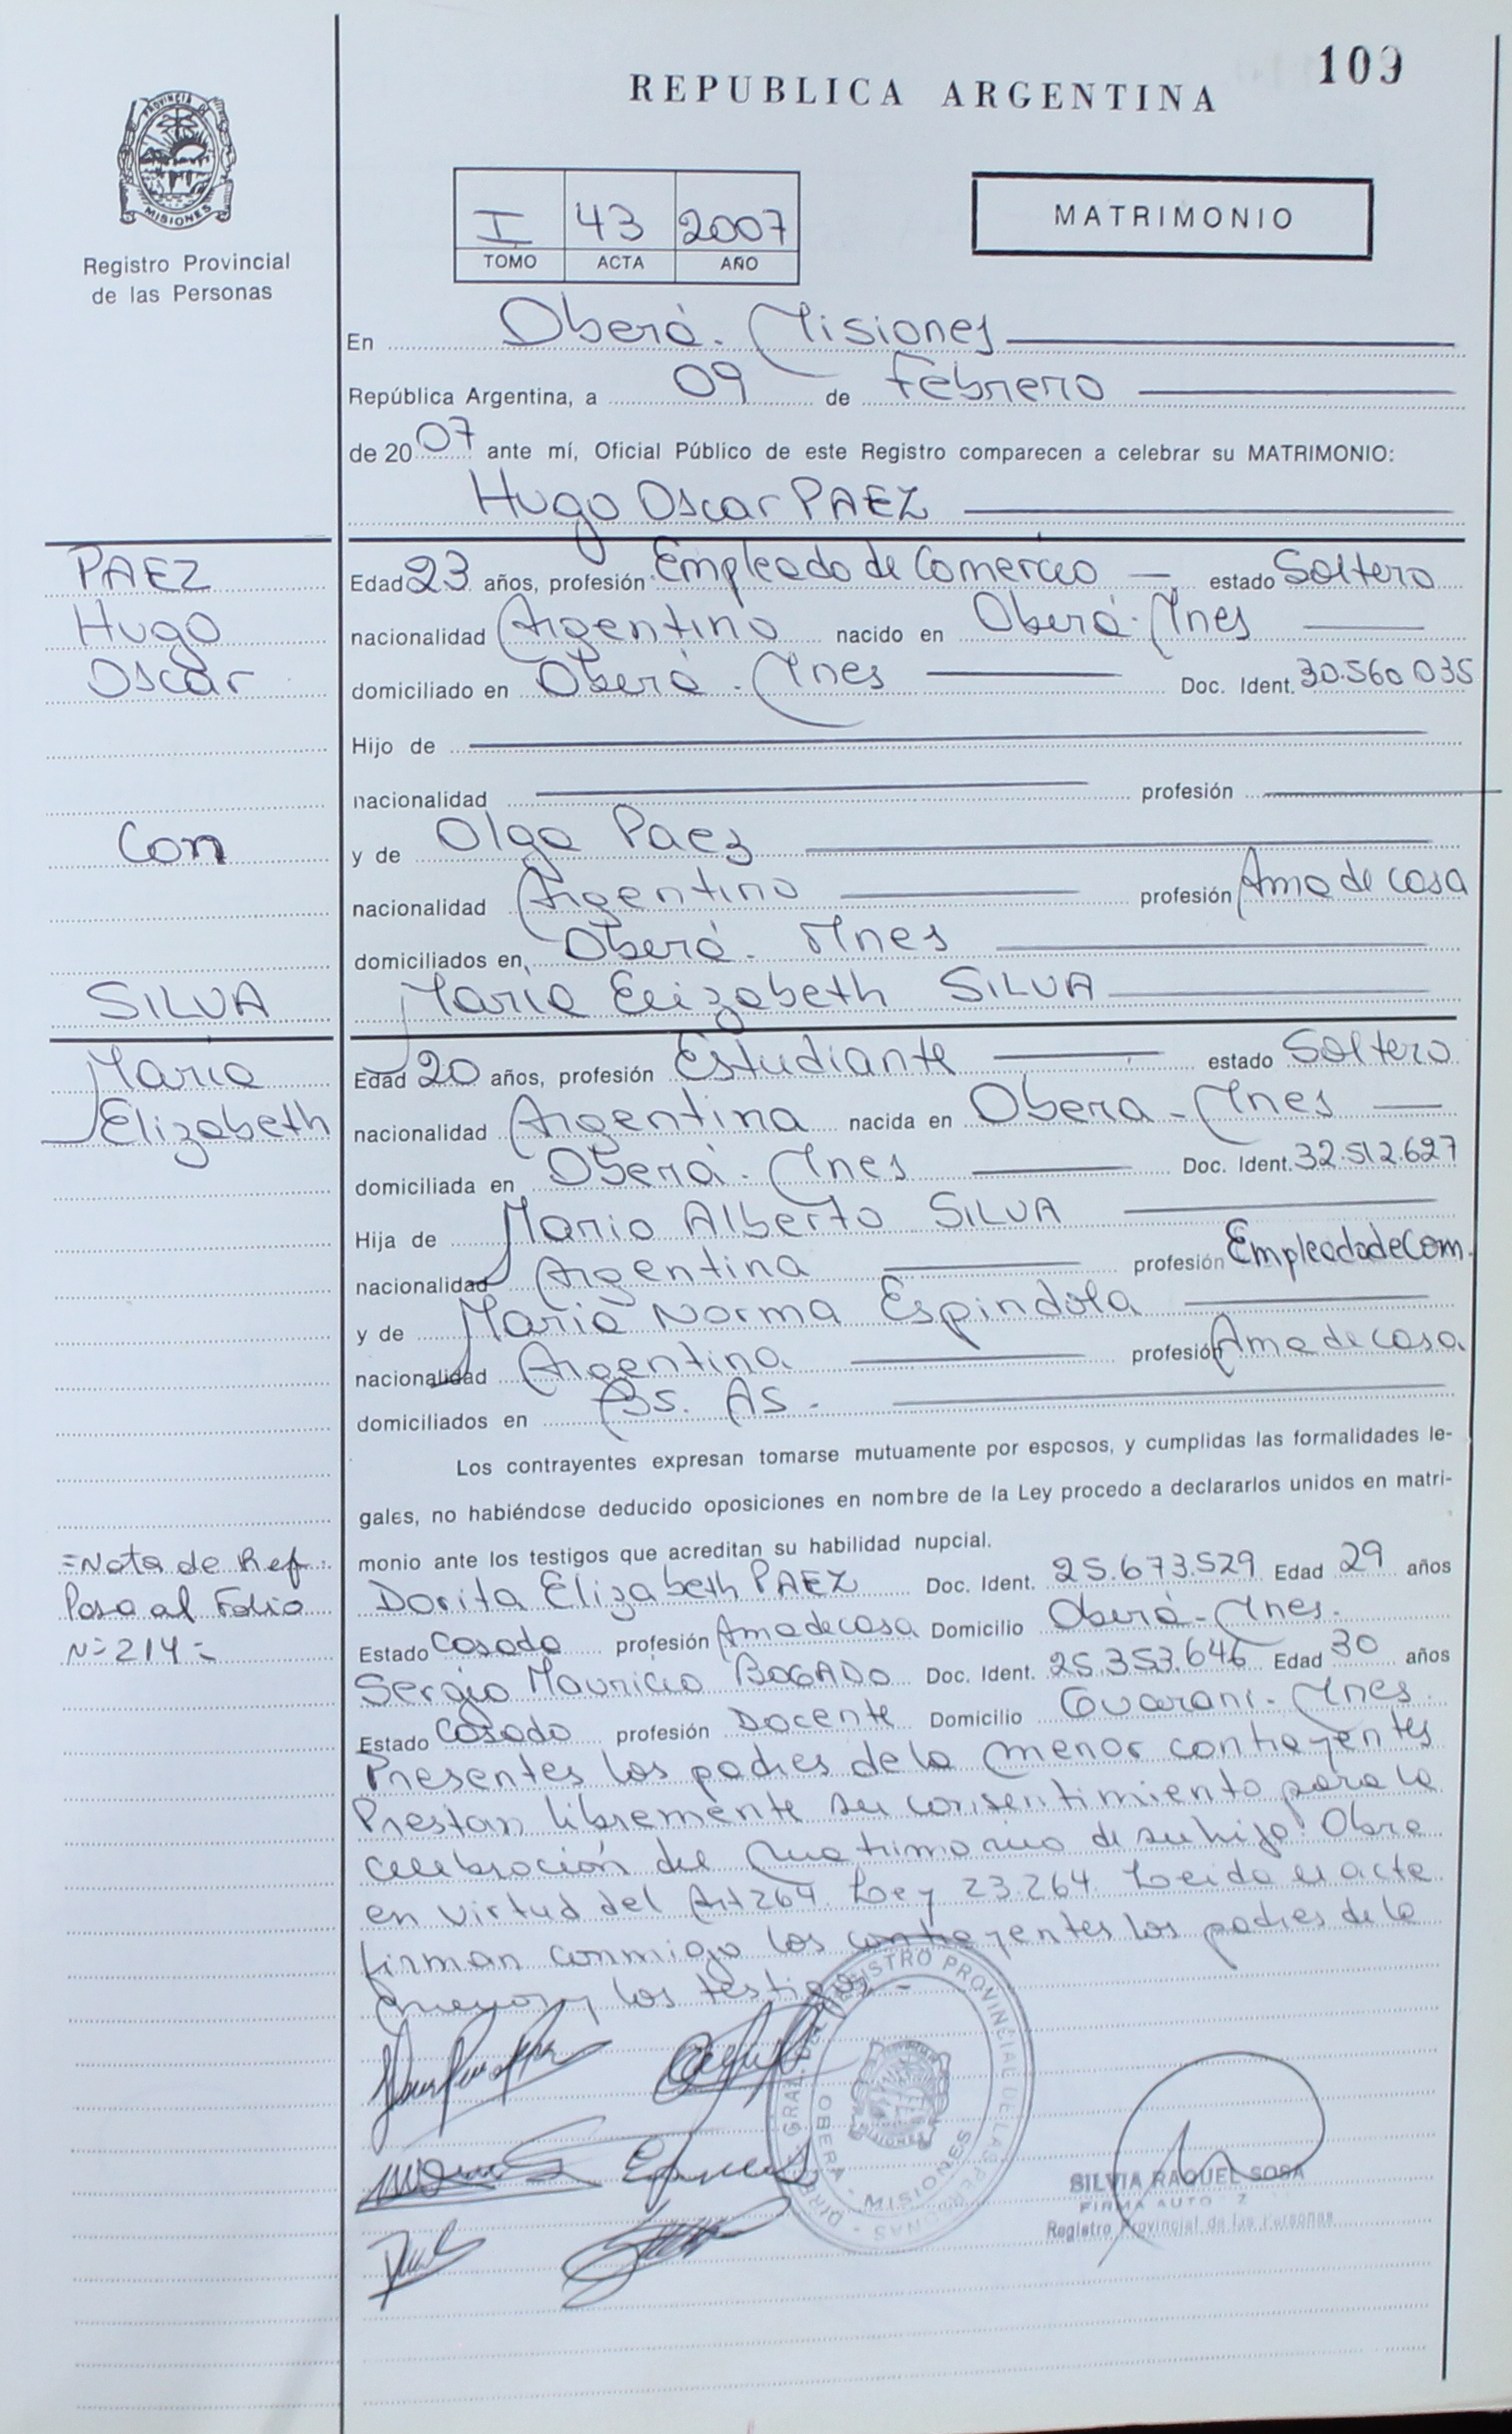 109
REPUBLICA ARGENTINA
PROVINCIA DE
MISIONES
Registro Provincial
de las Personas
I 43 2007
TOMO ACTA AÑO
MATRIMONIO
En Oberá. Misiones
República Argentina, a 09 de Febrero
de 2007 ante mí, Oficial Público de este Registro comparecen a celebrar su MATRIMONIO:
Hugo Oscar PAEZ
PAEZ
Hugo
Oscar
Con
SILVA
Maria
Elizabeth
Edad 23 años, profesión Empleado de Comercio estado Soltero
nacionalidad Argentino nacido en Oberá. Mnes
domiciliado en Oberá. Mnes Doc. Ident. 30.560.035
Hijo de
nacionalidad profesión
y de Olga Paez
nacionalidad Argentina profesión Ama de casa
domiciliados en Oberá. Mnes
Maria Elizabeth SILVA
Edad 20 años, profesión Estudiante estado Soltera
nacionalidad Argentina nacida en Obera - Mnes
domiciliada en Oberá. Mnes Doc. Ident. 32.512.627
Hija de Mario Alberto SILVA
nacionalidad Argentina profesión Empleado de Com.
y de Maria Norma Espindola
nacionalidad Argentina profesión Ama de casa
domiciliados en Bs. As.
Los contrayentes expresan tomarse mutuamente por esposos, y cumplidas las formalidades le-
gales, no habiéndose deducido oposiciones en nombre de la Ley procedo a declararlos unidos en matri-
monio ante los testigos que acreditan su habilidad nupcial.
=Nota de Ref.
Pasa al Folio
Nº 214=
Dorita Elizabeth PAEZ Doc. Ident. 25.673.529 Edad 29 años
Estado Casada profesión Ama de casa Domicilio Oberá - Mnes.
Sergio Mauricio BOGADO Doc. Ident. 25.353.646 Edad 30 años
Estado Casado profesión Docente Domicilio Guarani - Mnes.
Presentes los padres de la menor contrayentes
Prestan libremente su consentimiento para la
celebración del Matrimonio de su hija. Obra
en virtud del Art 264. Ley 23.264. Leida el acta
firman conmigo los contrayentes los padres de la
menor y los testigos. -
REGISTRO PROVINCIAL DE LAS PERSONAS
OBERA - MISIONES
SILVIA RAQUEL SOSA
Registro Provincial de las Personas